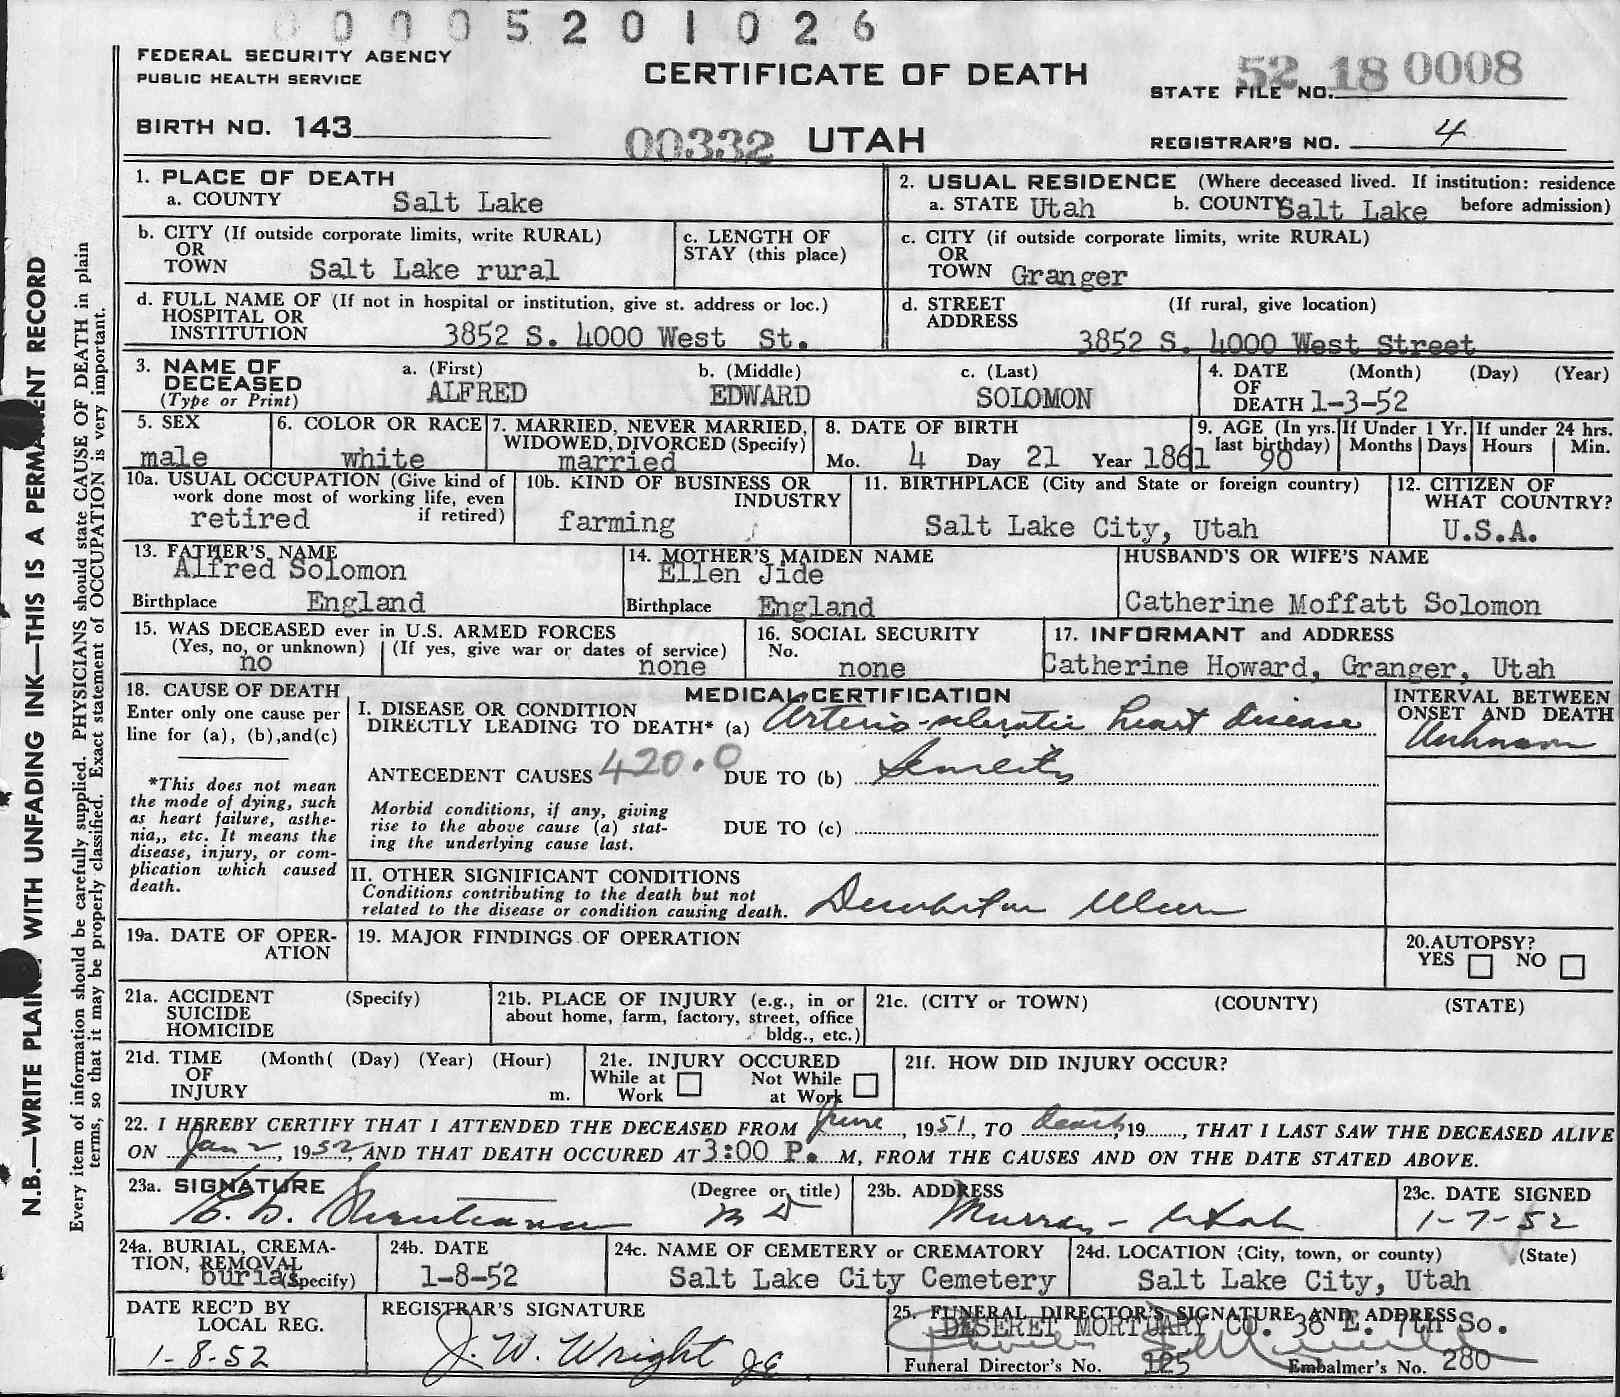 0005201026
FEDERAL SECURITY AGENCY
PUBLIC HEALTH SERVICE
CERTIFICATE OF DEATH
52 18 0008
STATE FILE NO.
BIRTH NO. 143
00332 UTAH
REGISTRAR'S NO. 4
N.B.—WRITE PLAIN WITH UNFADING INK—THIS IS A PERMANENT RECORD
Every item of information should be carefully supplied. PHYSICIANS should state CAUSE OF DEATH in plain
terms, so that it may be properly classified. Exact statement of OCCUPATION is very important.
1. PLACE OF DEATH
a. COUNTY Salt Lake
2. USUAL RESIDENCE (Where deceased lived. If institution: residence
a. STATE Utah b. COUNTY Salt Lake before admission)
b. CITY (If outside corporate limits, write RURAL)
OR
TOWN Salt Lake rural
c. LENGTH OF
STAY (this place)
c. CITY (if outside corporate limits, write RURAL)
OR
TOWN Granger
d. FULL NAME OF (If not in hospital or institution, give st. address or loc.)
HOSPITAL OR
INSTITUTION 3852 S. 4000 West St.
d. STREET (If rural, give location)
ADDRESS
3852 S. 4000 West Street
3. NAME OF DECEASED
(Type or Print)
a. (First) b. (Middle) c. (Last)
ALFRED EDWARD SOLOMON
4. DATE (Month) (Day) (Year)
OF
DEATH 1-3-52
5. SEX
male
6. COLOR OR RACE
white
7. MARRIED, NEVER MARRIED,
WIDOWED, DIVORCED (Specify)
married
8. DATE OF BIRTH
Mo. 4 Day 21 Year 1861
9. AGE (In yrs.
last birthday)
90
If Under 1 Yr.
Months Days
If under 24 hrs.
Hours Min.
10a. USUAL OCCUPATION (Give kind of
work done most of working life, even
if retired)
retired
10b. KIND OF BUSINESS OR
INDUSTRY
farming
11. BIRTHPLACE (City and State or foreign country)
Salt Lake City, Utah
12. CITIZEN OF
WHAT COUNTRY?
U.S.A.
13. FATHER'S NAME
Alfred Solomon
Birthplace England
14. MOTHER'S MAIDEN NAME
Ellen Jide
Birthplace England
HUSBAND'S OR WIFE'S NAME
Catherine Moffatt Solomon
15. WAS DECEASED ever in U.S. ARMED FORCES
(Yes, no, or unknown) (If yes, give war or dates of service)
no none
16. SOCIAL SECURITY
No.
none
17. INFORMANT and ADDRESS
Catherine Howard, Granger, Utah
18. CAUSE OF DEATH
Enter only one cause per
line for (a), (b),and(c)
*This does not mean
the mode of dying, such
as heart failure, asthe-
nia,, etc. It means the
disease, injury, or com-
plication which caused
death.
MEDICAL CERTIFICATION
I. DISEASE OR CONDITION
DIRECTLY LEADING TO DEATH* (a) Arterio-sclerotic heart disease
ANTECEDENT CAUSES 420.0 DUE TO (b) Senility
Morbid conditions, if any, giving
rise to the above cause (a) stat-
ing the underlying cause last.
DUE TO (c)
INTERVAL BETWEEN
ONSET AND DEATH
Unknown
II. OTHER SIGNIFICANT CONDITIONS
Conditions contributing to the death but not
related to the disease or condition causing death. Decubitus Ulcer
19a. DATE OF OPER-
ATION
19. MAJOR FINDINGS OF OPERATION
20.AUTOPSY?
YES NO
21a. ACCIDENT (Specify)
SUICIDE
HOMICIDE
21b. PLACE OF INJURY (e.g., in or
about home, farm, factory, street, office
bldg., etc.)
21c. (CITY or TOWN) (COUNTY) (STATE)
21d. TIME (Month( (Day) (Year) (Hour)
OF
INJURY m.
21e. INJURY OCCURED
While at Work Not While at Work
21f. HOW DID INJURY OCCUR?
22. I HEREBY CERTIFY THAT I ATTENDED THE DECEASED FROM June, 1951, TO death, 19......, THAT I LAST SAW THE DECEASED ALIVE
ON Jan 2, 1952, AND THAT DEATH OCCURED AT 3:00 P. M, FROM THE CAUSES AND ON THE DATE STATED ABOVE.
23a. SIGNATURE (Degree or title)
M D
23b. ADDRESS
Murray - Utah
23c. DATE SIGNED
1-7-52
24a. BURIAL, CREMA-
TION, REMOVAL
burial (Specify)
24b. DATE
1-8-52
24c. NAME OF CEMETERY or CREMATORY
Salt Lake City Cemetery
24d. LOCATION (City, town, or county) (State)
Salt Lake City, Utah
DATE REC'D BY
LOCAL REG.
1-8-52
REGISTRAR'S SIGNATURE
J. W. Wright
25. FUNERAL DIRECTOR'S SIGNATURE AND ADDRESS
DESERET MORTUARY CO. 36 E. 7th So.
Funeral Director's No. 125 Embalmer's No. 280